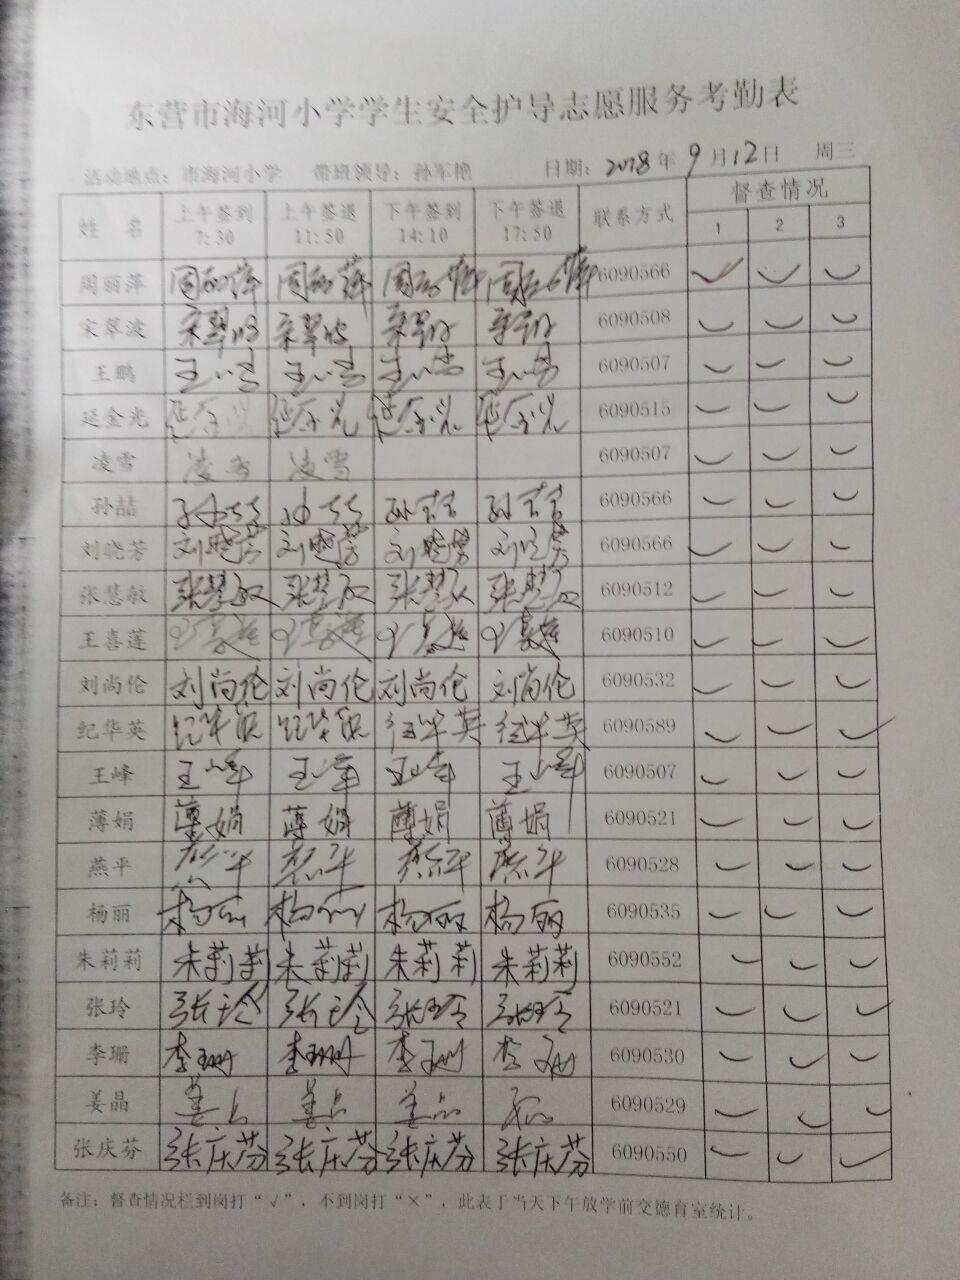 东营市海河小学学生安全护导志愿服务考勤表
活动地点：市海河小学 带班领导：孙军艳 日期：2018年9月12日 周三
姓 名 上午签到 7:30 上午签退 11:50 下午签到 14:10 下午签退 17:50 联系方式 督查情况
1 2 3
周丽萍 周丽萍 周丽萍 周丽萍 周丽萍 6090566 ✓ ✓ ✓
宋翠波 宋翠波 宋翠波 宋翠波 宋翠波 6090508 ✓ ✓ ✓
王鹏 6090507 ✓ ✓ ✓
延金光 延金光 延金光 延金光 延金光 6090515 ✓ ✓ ✓
凌雪 凌雪 凌雪 6090507 ✓ ✓ ✓
孙喆 孙喆 孙喆 孙喆 孙喆 6090566 ✓ ✓ ✓
刘晓芳 刘晓芳 刘晓芳 刘晓芳 刘晓芳 6090566 ✓ ✓ ✓
张慧敏 张慧敏 张慧敏 张慧敏 张慧敏 6090512 ✓ ✓ ✓
王喜莲 王喜莲 王喜莲 王喜莲 王喜莲 6090510 ✓ ✓ ✓
刘尚伦 刘尚伦 刘尚伦 刘尚伦 刘尚伦 6090532 ✓ ✓ ✓
纪华英 纪华英 纪华英 纪华英 纪华英 6090589 ✓ ✓ ✓
王峰 王峰 王峰 王峰 王峰 6090507 ✓ ✓ ✓
薄娟 薄娟 薄娟 薄娟 薄娟 6090521 ✓ ✓ ✓
燕平 燕平 燕平 燕平 燕平 6090528 ✓ ✓ ✓
杨丽 杨丽 杨丽 杨丽 杨丽 6090535 ✓ ✓ ✓
朱莉莉 朱莉莉 朱莉莉 朱莉莉 朱莉莉 6090552 ✓ ✓ ✓
张玲 张玲 张玲 张玲 张玲 6090521 ✓ ✓ ✓
李珊 李珊 李珊 李珊 李珊 6090530 ✓ ✓ ✓
姜晶 姜晶 姜晶 姜晶 6090529 ✓ ✓ ✓
张庆芬 张庆芬 张庆芬 张庆芬 张庆芬 6090550 ✓ ✓ ✓
备注：督查情况栏到岗打“√”，不到岗打“×”，此表于当天下午放学前交德育室统计。